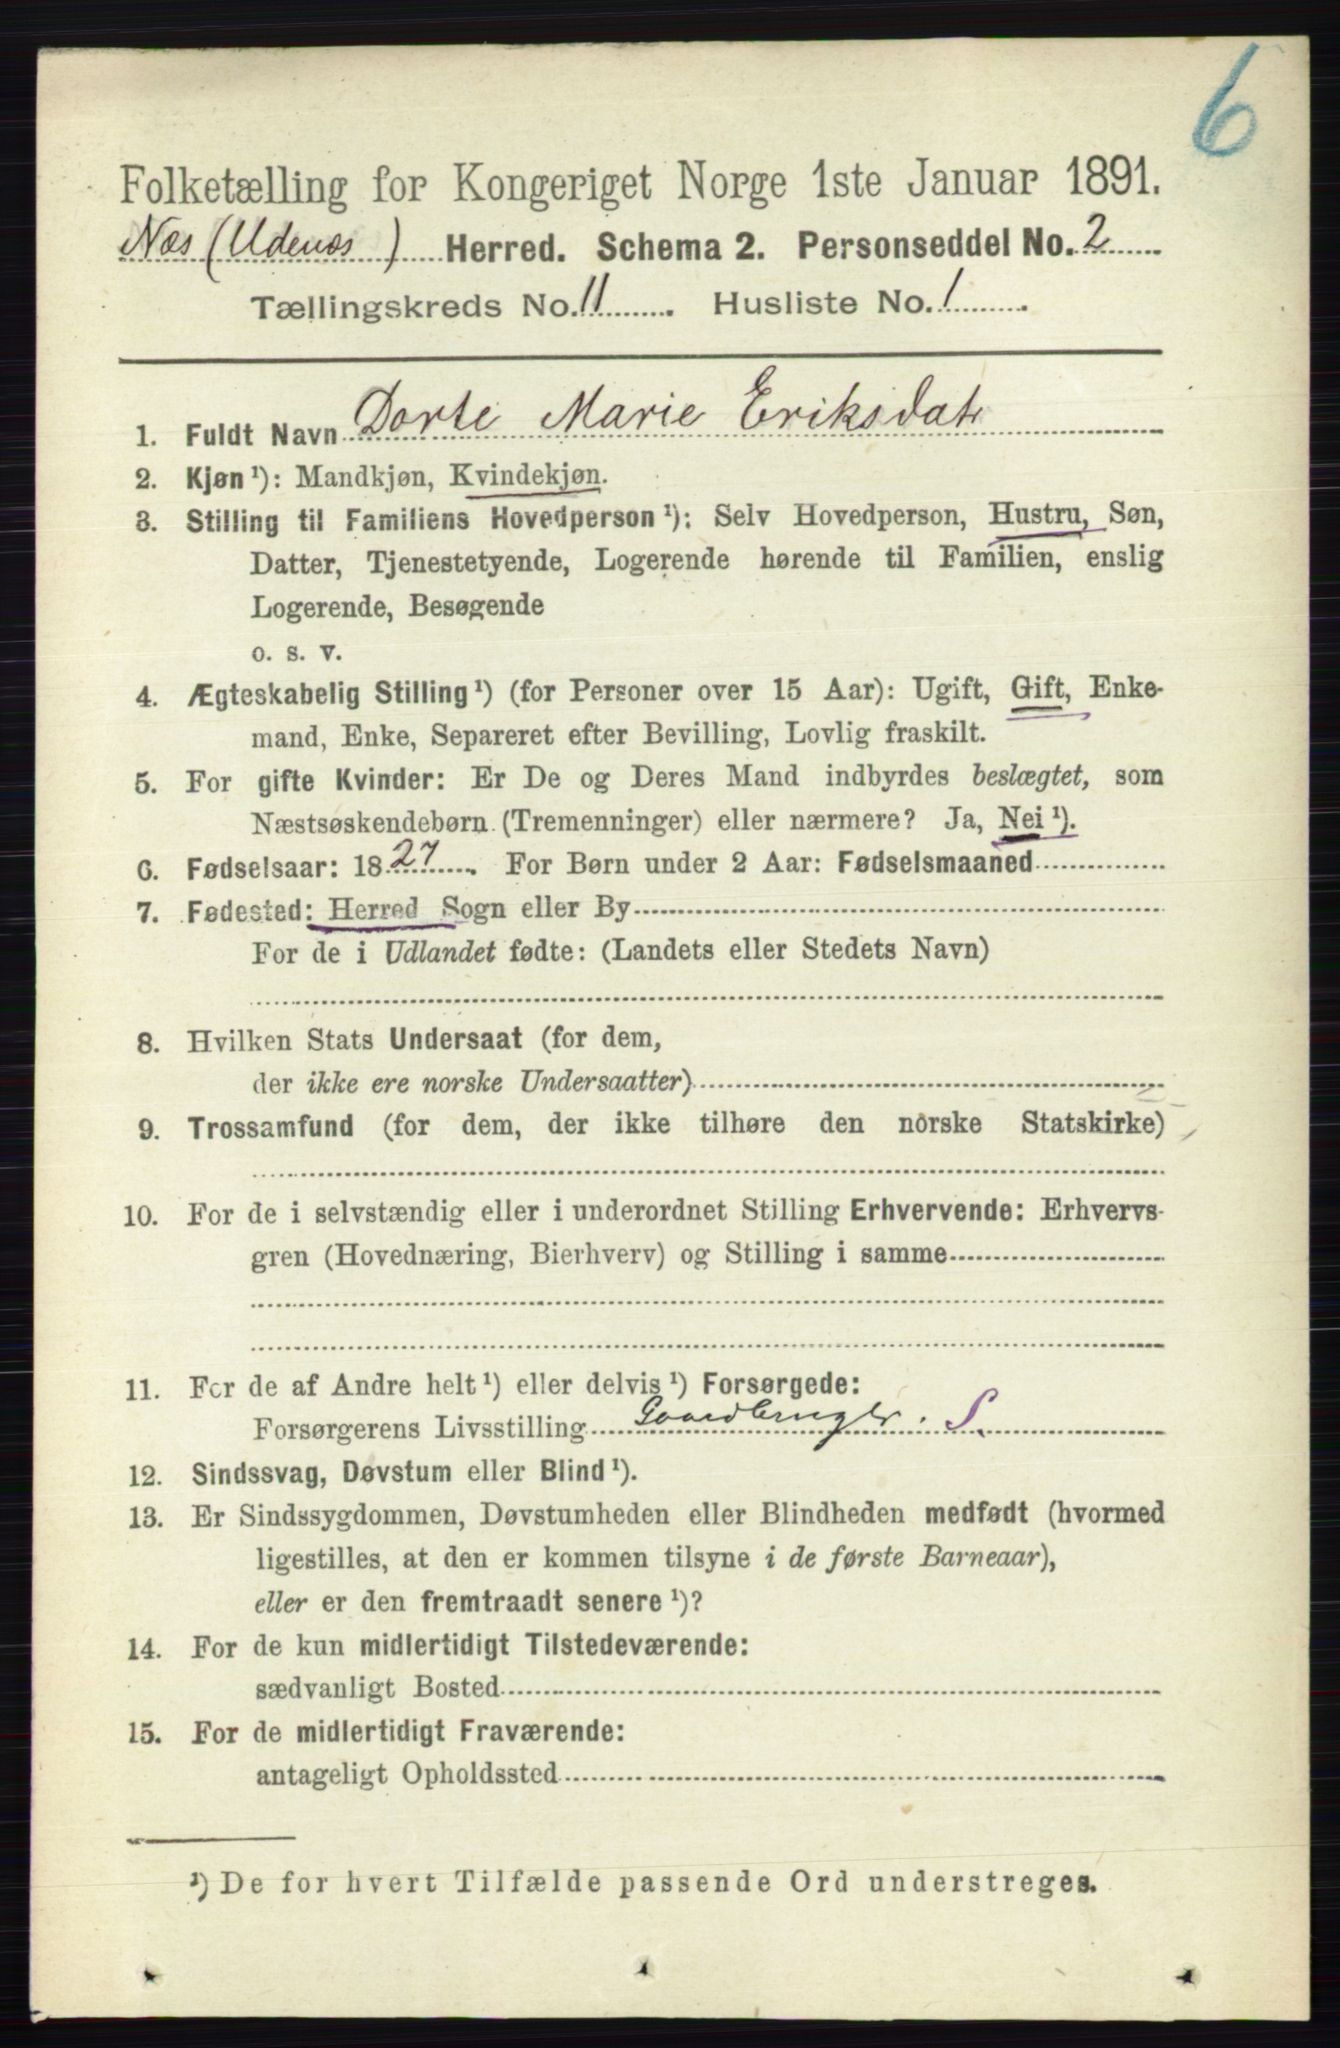 6
Folketælling for Kongeriget Norge 1ste Januar 1891.
Næs (Udenæs) Herred. Schema 2. Personseddel No. 2
Tællingskreds No. 11. Husliste No. 1.
1. Fuldt Navn Dorte Marie Eriksdatr
2. Kjøn¹): Mandkjøn, Kvindekjøn.
3. Stilling til Familiens Hovedperson¹): Selv Hovedperson, Hustru, Søn,
Datter, Tjenestetyende, Logerende hørende til Familien, enslig
Logerende, Besøgende
o. s. v.
4. Ægteskabelig Stilling¹) (for Personer over 15 Aar): Ugift, Gift, Enke-
mand, Enke, Separeret efter Bevilling, Lovlig fraskilt.
5. For gifte Kvinder: Er De og Deres Mand indbyrdes beslægtet, som
Næstsøskendebørn (Tremenninger) eller nærmere? Ja, Nei¹).
6. Fødselsaar: 1827. For Børn under 2 Aar: Fødselsmaaned
7. Fødested: Herred Sogn eller By
For de i Udlandet fødte: (Landets eller Stedets Navn)
8. Hvilken Stats Undersaat (for dem,
der ikke ere norske Undersaatter)
9. Trossamfund (for dem, der ikke tilhøre den norske Statskirke)
10. For de i selvstændig eller i underordnet Stilling Erhvervende: Erhvervs-
gren (Hovednæring, Bierhverv) og Stilling i samme
11. For de af Andre helt¹) eller delvis¹) Forsørgede:
Forsørgerens Livsstilling Gaardbruger. S.
12. Sindssvag, Døvstum eller Blind¹).
13. Er Sindssygdommen, Døvstumheden eller Blindheden medfødt (hvormed
ligestilles, at den er kommen tilsyne i de første Barneaar),
eller er den fremtraadt senere¹)?
14. For de kun midlertidigt Tilstedeværende:
sædvanligt Bosted
15. For de midlertidigt Fraværende:
antageligt Opholdssted
¹) De for hvert Tilfælde passende Ord understreges.